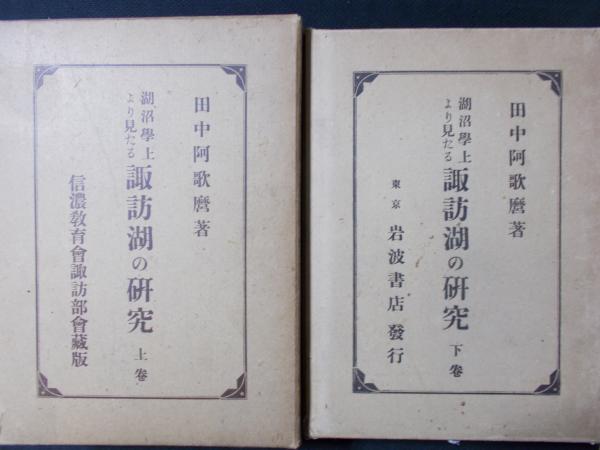 田中阿歌麿著
湖沼學上
より見たる
諏訪湖の硏究 上卷
信濃敎育會諏訪部會藏版
田中阿歌麿著
湖沼學上
より見たる
諏訪湖の硏究 下卷
東京 岩波書店 發行